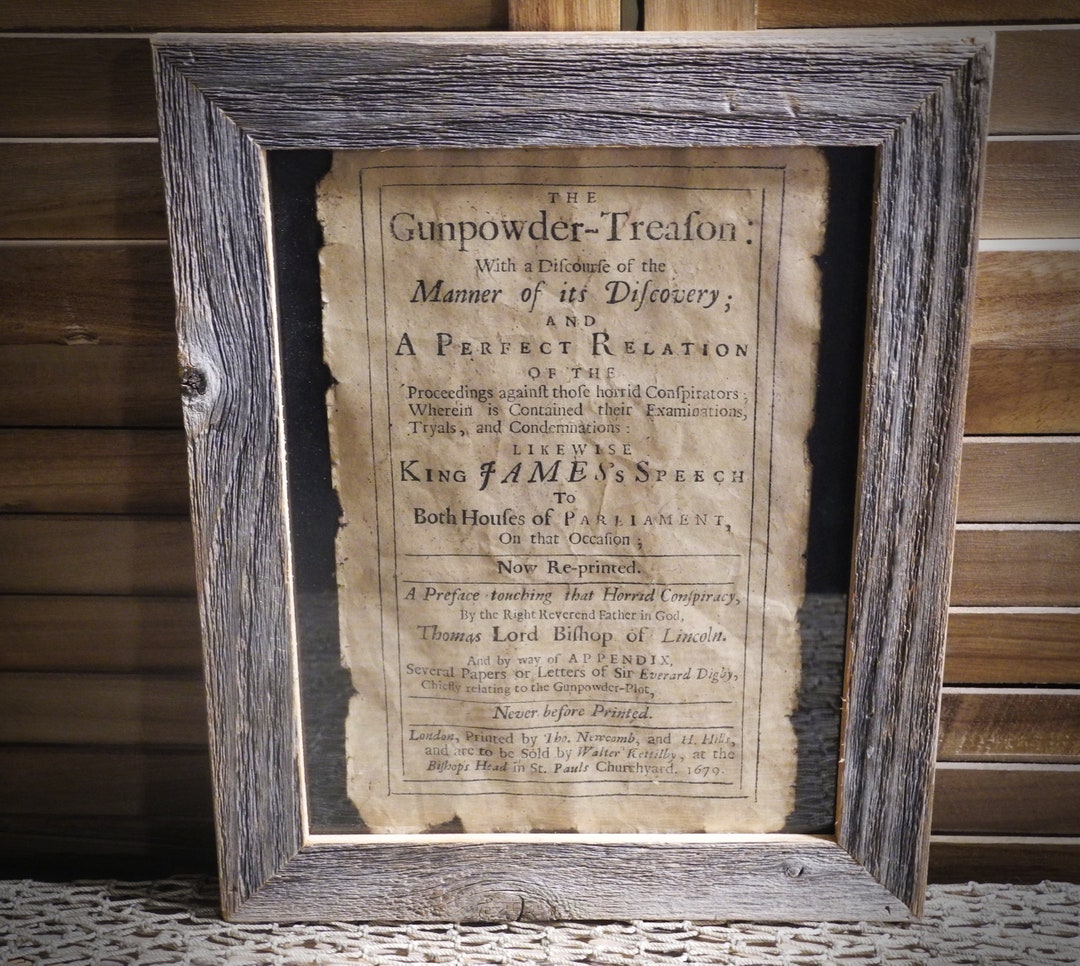 THE
Gunpowder-Treaſon:
With a Diſcourſe of the
Manner of its Diſcovery;
AND
A PERFECT RELATION
OF THE
Proceedings againſt thoſe horrid Conſpirators;
Wherein is Contained their Examinations,
Tryals, and Condemnations:
LIKEWISE
KING JAMES's SPEECH
To
Both Houſes of PARLIAMENT,
On that Occaſion;
Now Re-printed.
A Preface touching that Horrid Conſpiracy,
By the Right Reverend Father in God,
Thomas Lord Biſhop of Lincoln.
And by way of APPENDIX,
Several Papers or Letters of Sir Everard Digby,
Chiefly relating to the Gunpowder-Plot,
Never before Printed.
London, Printed by Tho. Newcomb, and H. Hills,
and are to be Sold by Walter Kettilby, at the
Biſhops Head in St. Pauls Churchyard. 1679.